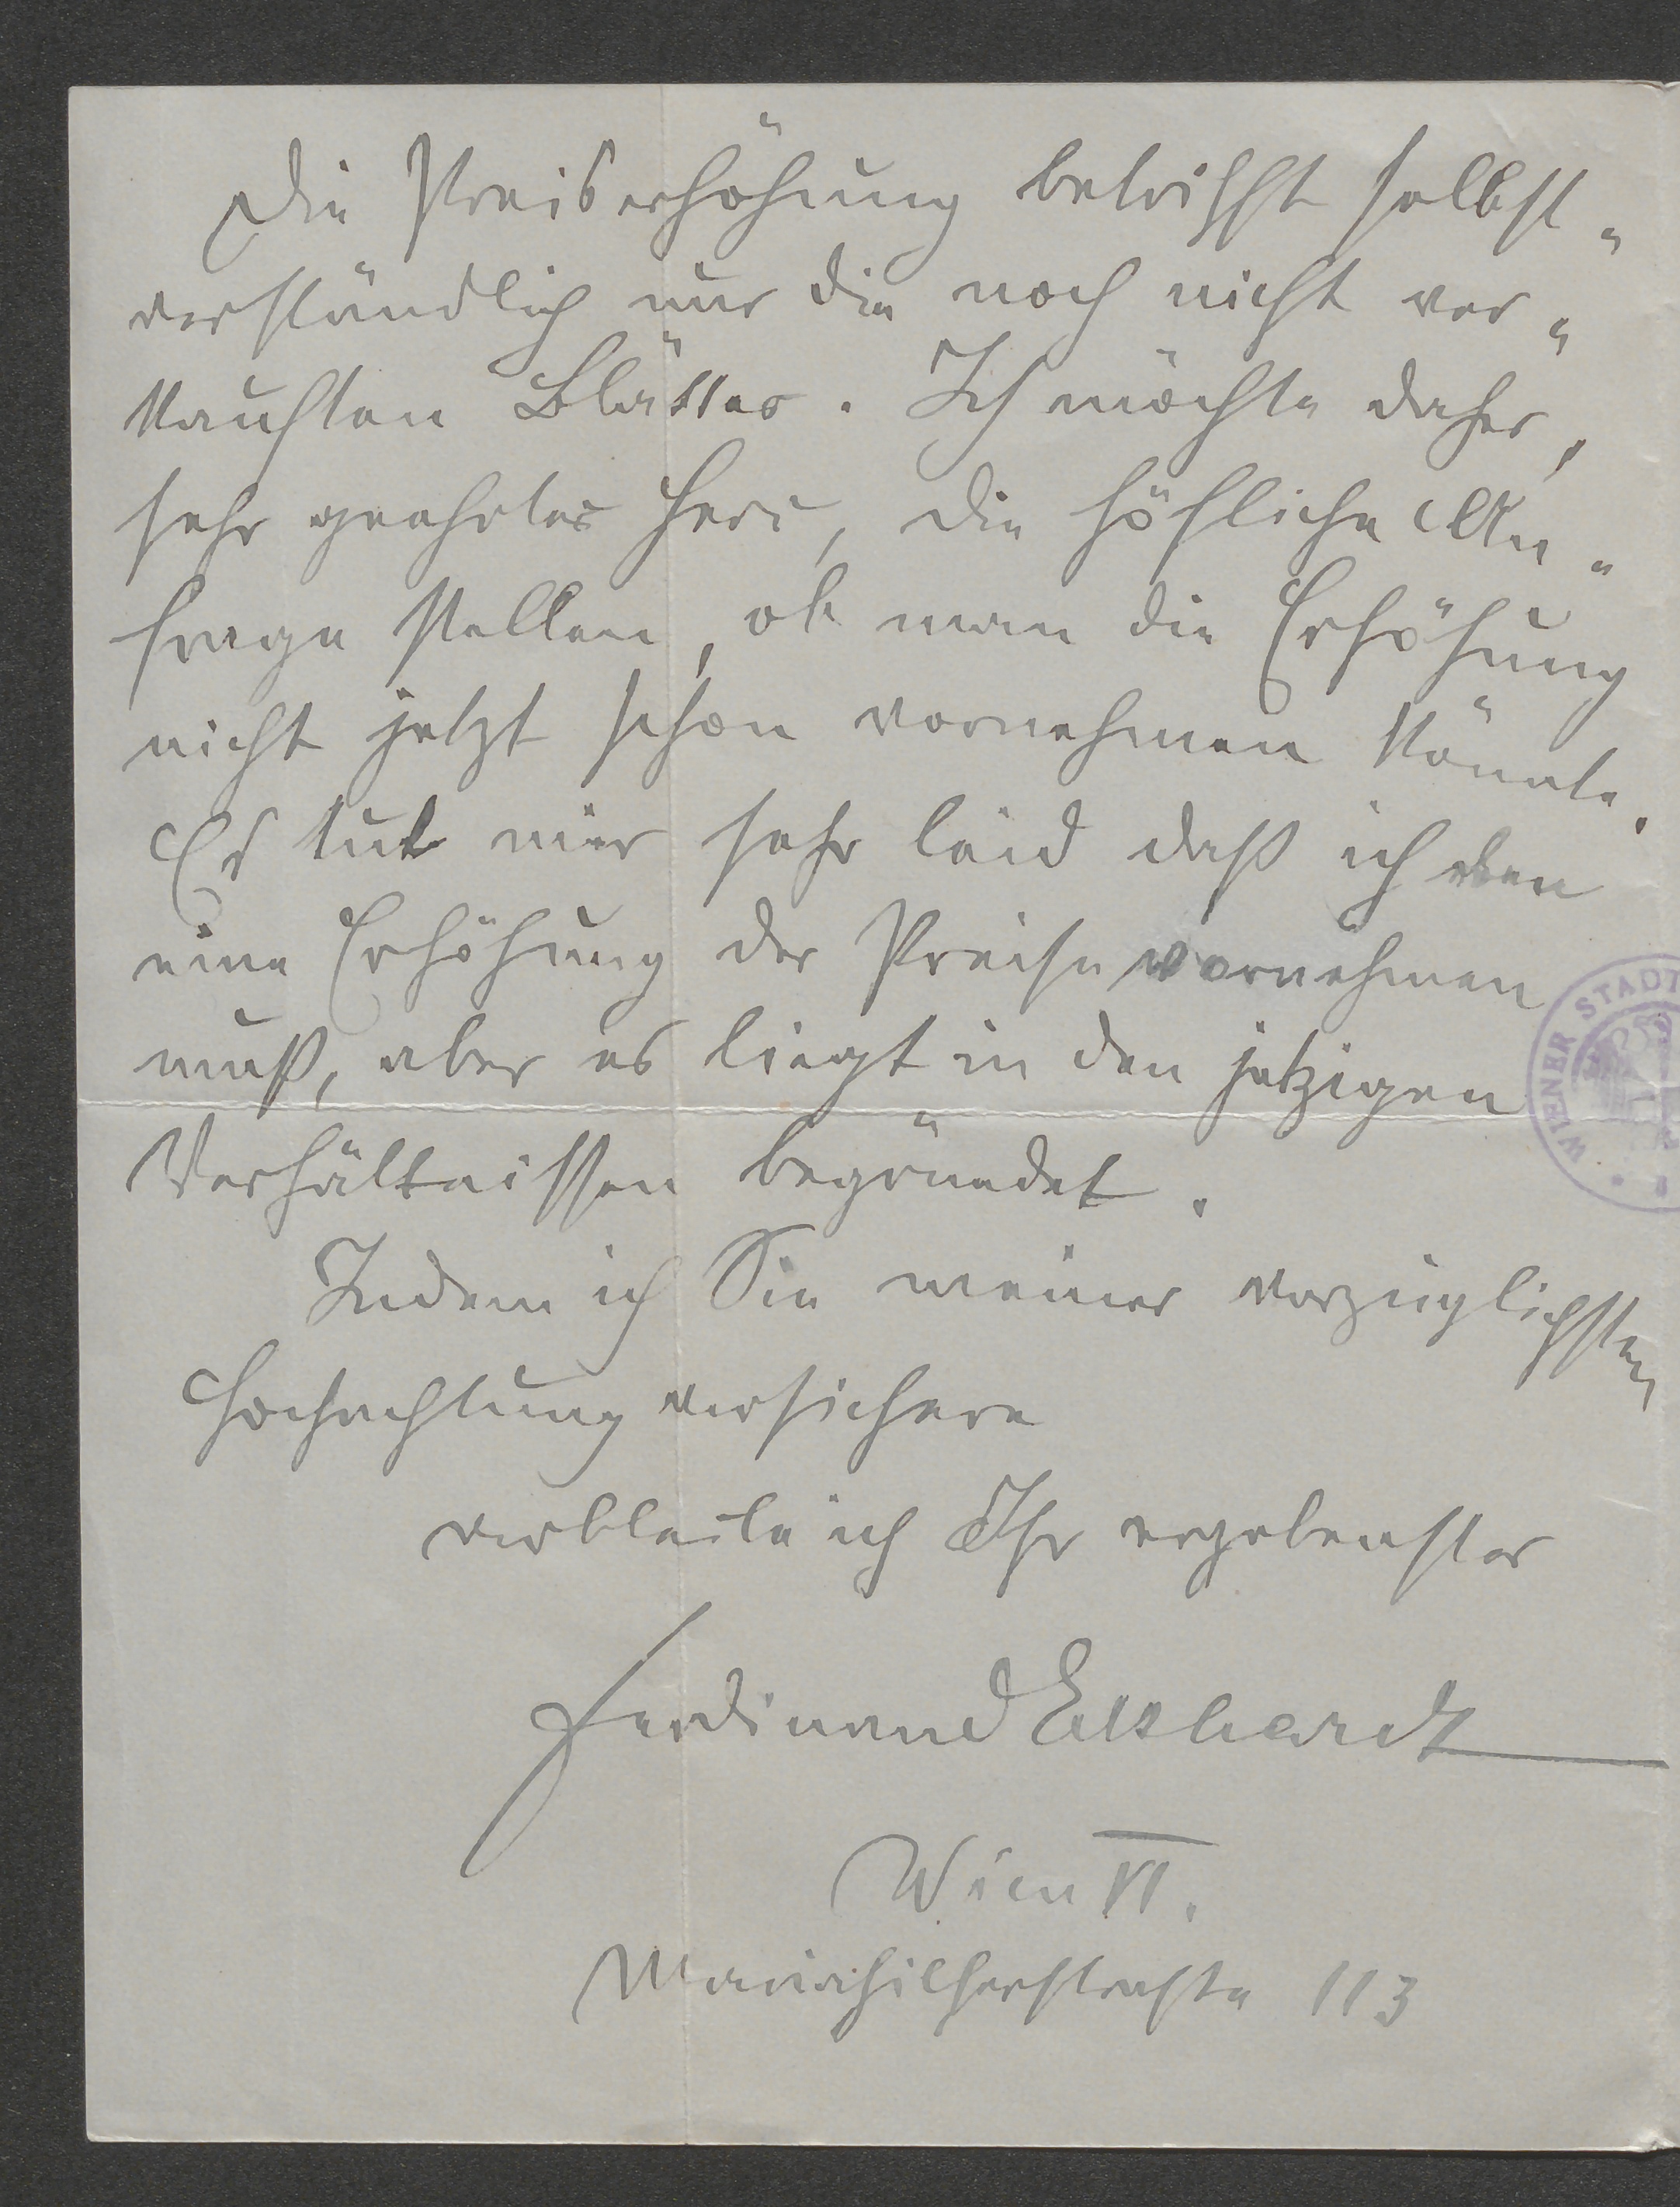 Die Preiserhöhung betrifft selbst„
verständlich nur die noch nicht ver„
kauften Blätter. Ich möchte daher,
sehr geehrter Herr, die höfliche An„
frage stellen, ob man die Erhöhung
nicht jetzt schon vornehmen könnte.
Es tut mir sehr leid daß ich eben
eine Erhöhung der Preise vornehmen
muß, aber es liegt in den jetzigen
Verhältnissen begründet.
Indem ich Sie meiner vorzüglichsten
Hochachtung versichere
verbleibe ich Ihr ergebenster
Ferdinand Eckhardt
Wien VI.
Mariahilferstraße 113
WIENER STADT